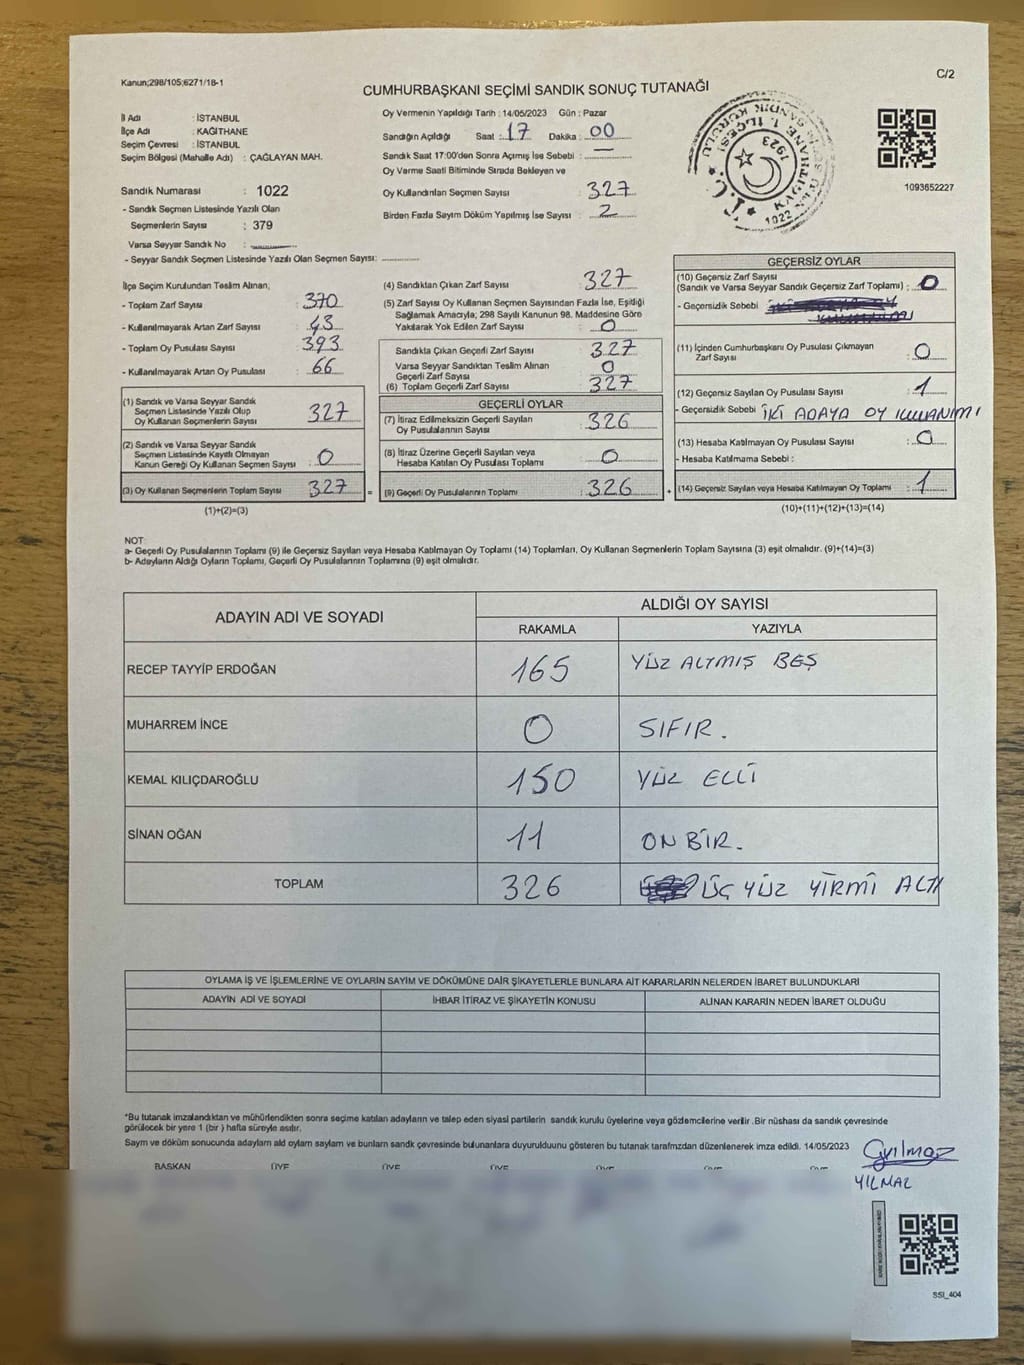 Kanun;298/105;6271/18-1
C/2
CUMHURBAŞKANI SEÇİMİ SANDIK SONUÇ TUTANAĞI
İl Adı : İSTANBUL
İlçe Adı : KAĞITHANE
Seçim Çevresi : İSTANBUL
Seçim Bölgesi (Mahalle Adı) : ÇAĞLAYAN MAH.
Sandık Numarası : 1022
- Sandık Seçmen Listesinde Yazılı Olan
Seçmenlerin Sayısı : 379
Varsa Seyyar Sandık No :
- Seyyar Sandık Seçmen Listesinde Yazılı Olan Seçmen Sayısı:
Oy Vermenin Yapıldığı Tarih : 14/05/2023 Gün : Pazar
Sandığın Açıldığı Saat : 17 Dakika : 00
Sandık Saat 17:00'den Sonra Açımış İse Sebebi : —
Oy Varme Saati Bitiminde Sırada Bekleyen ve
Oy Kullandırılan Seçmen Sayısı : 327
Birden Fazla Sayım Döküm Yapılmış İse Sayısı : 2
T.C.
KAĞITHANE 1. İLÇESİ
1923
1022
SANDIK KURULU
1093652227
İlçe Seçim Kurulundan Teslim Alınan;
- Toplam Zarf Sayısı : 370
- Kullanılmayarak Artan Zarf Sayısı : 43
- Toplam Oy Pusulası Sayısı : 393
- Kullanılmayarak Artan Oy Pusulası : 66
(1) Sandık ve Varsa Seyyar Sandık
Seçmen Listesinde Yazılı Olup
Oy Kullanan Seçmenlerin Sayısı : 327
(2) Sandık ve Varsa Seyyar Sandık
Seçmen Listesinde Kayıtlı Olmayan
Kanun Gereği Oy Kullanan Seçmen Sayısı : 0
(3) Oy Kullanan Seçmenlerin Toplam Sayısı : 327
(1)+(2)=(3)
(4) Sandıktan Çıkan Zarf Sayısı : 327
(5) Zarf Sayısı Oy Kullanan Seçmen Sayısından Fazla İse, Eşitliği
Sağlamak Amacıyla; 298 Sayılı Kanunun 98. Maddesine Göre
Yakılarak Yok Edilen Zarf Sayısı : 0
Sandıkta Çıkan Geçerli Zarf Sayısı : 327
Varsa Seyyar Sandıktan Teslim Alınan
Geçerli Zarf Sayısı : 0
(6) Toplam Geçerli Zarf Sayısı : 327
GEÇERLİ OYLAR
(7) İtiraz Edilmeksizin Geçerli Sayılan
Oy Pusulalarının Sayısı : 326
(8) İtiraz Üzerine Geçerli Sayılan veya
Hesaba Katılan Oy Pusulası Toplamı : 0
= (9) Geçerli Oy Pusulalarının Toplamı : 326
GEÇERSİZ OYLAR
(10) Geçersiz Zarf Sayısı
(Sandık ve Varsa Seyyar Sandık Geçersiz Zarf Toplamı) : 0
- Geçersizlik Sebebi :
(11) İçinden Cumhurbaşkanı Oy Pusulası Çıkmayan
Zarf Sayısı : 0
(12) Geçersiz Sayılan Oy Pusulası Sayısı : 1
- Geçersizlik Sebebi : İKİ ADAYA OY KULLANIMI
(13) Hesaba Katılmayan Oy Pusulası Sayısı : 0
- Hesaba Katılmama Sebebi :
+ (14) Geçersiz Sayılan veya Hesaba Katılmayan Oy Toplamı : 1
(10)+(11)+(12)+(13)=(14)
NOT:
a- Geçerli Oy Pusulalarının Toplamı (9) ile Geçersiz Sayılan veya Hesaba Katılmayan Oy Toplamı (14) Toplamları, Oy Kullanan Seçmenlerin Toplam Sayısına (3) eşit olmalıdır. (9)+(14)=(3)
b- Adayların Aldığı Oyların Toplamı, Geçerli Oy Pusulalarının Toplamına (9) eşit olmalıdır.
ADAYIN ADI VE SOYADI
ALDIĞI OY SAYISI
RAKAMLA YAZIYLA
RECEP TAYYİP ERDOĞAN 165 YÜZ ALTMIŞ BEŞ
MUHARREM İNCE 0 SIFIR.
KEMAL KILIÇDAROĞLU 150 YÜZ ELLİ
SİNAN OĞAN 11 ON BİR.
TOPLAM 326 ÜÇ YÜZ YİRMİ ALTI
OYLAMA İŞ VE İŞLEMLERİNE VE OYLARIN SAYIM VE DÖKÜMÜNE DAİR ŞİKAYETLERLE BUNLARA AİT KARARLARIN NELERDEN İBARET BULUNDUKLARI
ADAYIN ADI VE SOYADI İHBAR İTİRAZ VE ŞİKAYETİN KONUSU ALINAN KARARIN NEDEN İBARET OLDUĞU
*Bu tutanak imzalandıktan ve mühürlendikten sonra seçime katılan adayların ve talep eden siyasi partilerin sandık kurulu üyelerine veya gözlemcilerine verilir. Bir nüshası da sandık çevresinde
görülecek bir yere 1 (bir ) hafta süreyle asılır.
Sayım ve döküm sonucunda adayların aldı oyların sayların ve bunların sandk çevresinde bulunanlara duyurulduunu gösteren bu tutanak tarafmzdan düzenlenerek imza edildi. 14/05/2023
BAŞKAN ÜYE ÜYE ÜYE ÜYE ÜYE ÜYE
YILMAZ
SSI_404